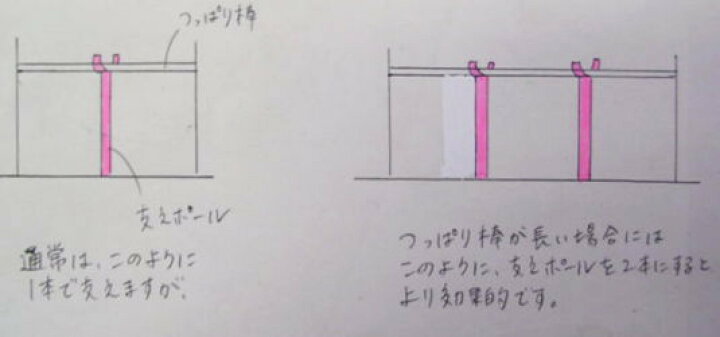 つっぱり棒
支えポール
通常は、このように
1本で支えますが、
つっぱり棒が長い場合には
このように、支えポールを2本にすると
より効果的です。